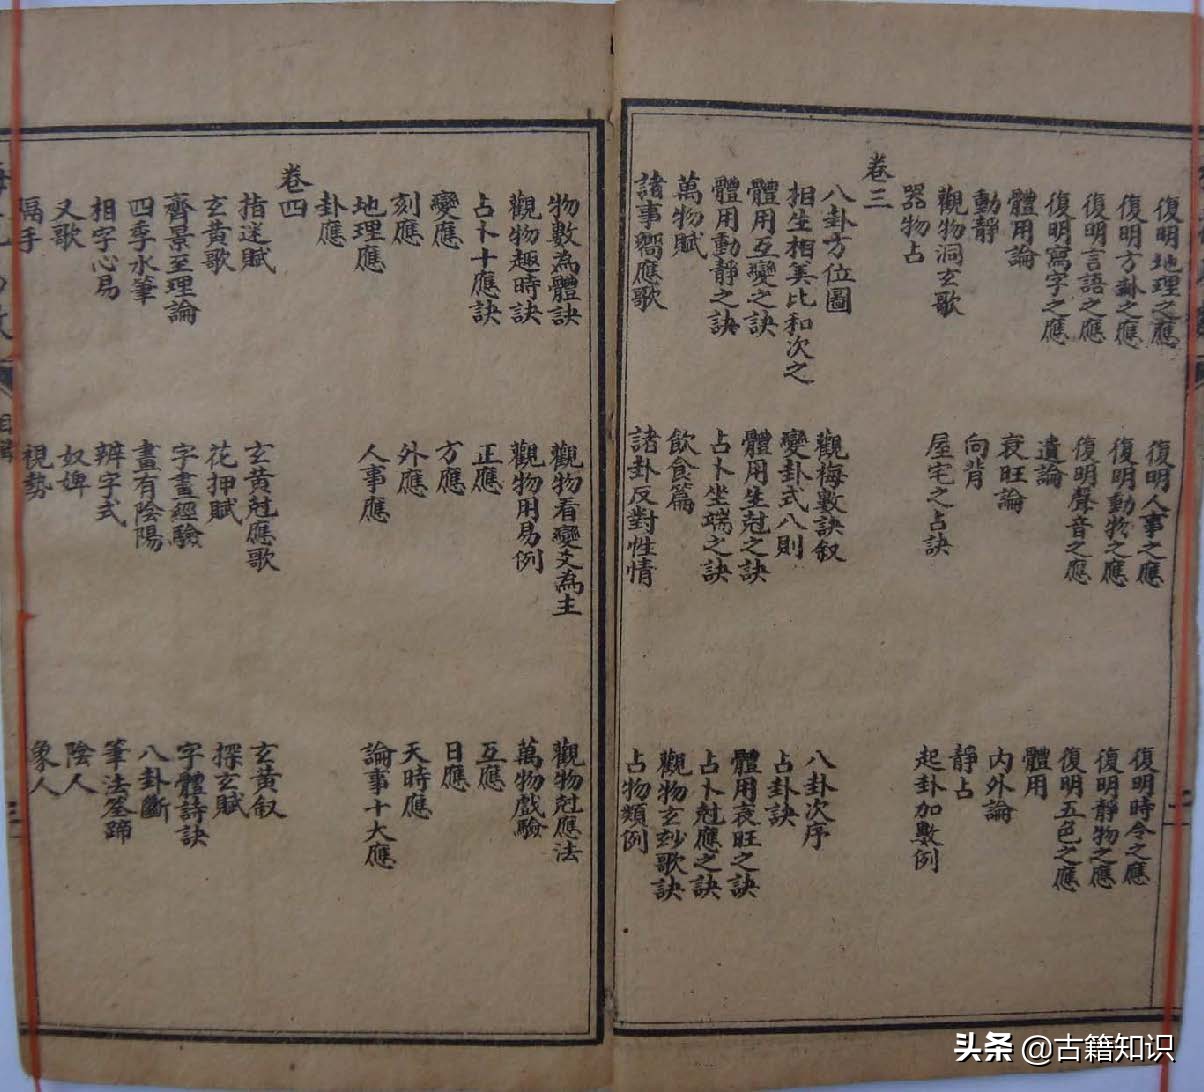 復明地理之應 復明人事之應 復明時令之應
復明方卦之應 復明動物之應 復明靜物之應
復明言語之應 復明聲音之應 復明五色之應
復明寫字之應 遺論 體用
體用論 衰旺論 內外論
動靜 向背 靜占
觀物洞玄歌 屋宅之占訣 起卦加數例
器物占
卷三
八卦方位圖 觀梅數訣叙 八卦次序
相生相尅比和次之 變卦式八則 占卦訣
體用互變之訣 體用生尅之訣 體用衰旺之訣
體用動靜之訣 占卜坐端之訣 占卜尅應之訣
萬物賦 飲食篇 觀物玄妙歌訣
諸事嚮應歌 諸卦反對性情 占物類例
物數為體訣 觀物看變爻為主 觀物尅應法
觀物趣時訣 觀物用易例 萬物戲驗
占卜十應訣 正應 互應
變應 方應 日應
刻應 外應 天時應
地理應 人事應 論事十大應
卦應
卷四
指迷賦 玄黃尅應歌 玄黃叙
玄黃歌 花押賦 探玄賦
齊景至理論 字畫經驗 字體詩訣
四季水筆 畫有陰陽 八卦斷
相字心易 辨字式 筆法筌蹄
又歌 奴婢 陰人
隔手 視勢 象人
头条 @古籍知识